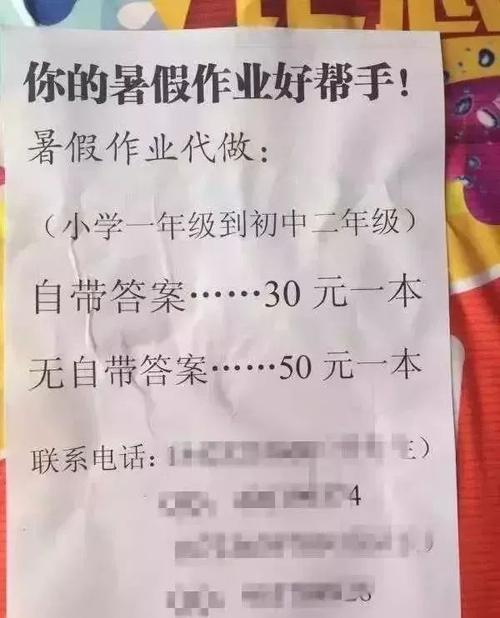 你的暑假作业好帮手!
暑假作业代做:
(小学一年级到初中二年级)
自带答案……30 元一本
无自带答案……50 元一本
联系电话: